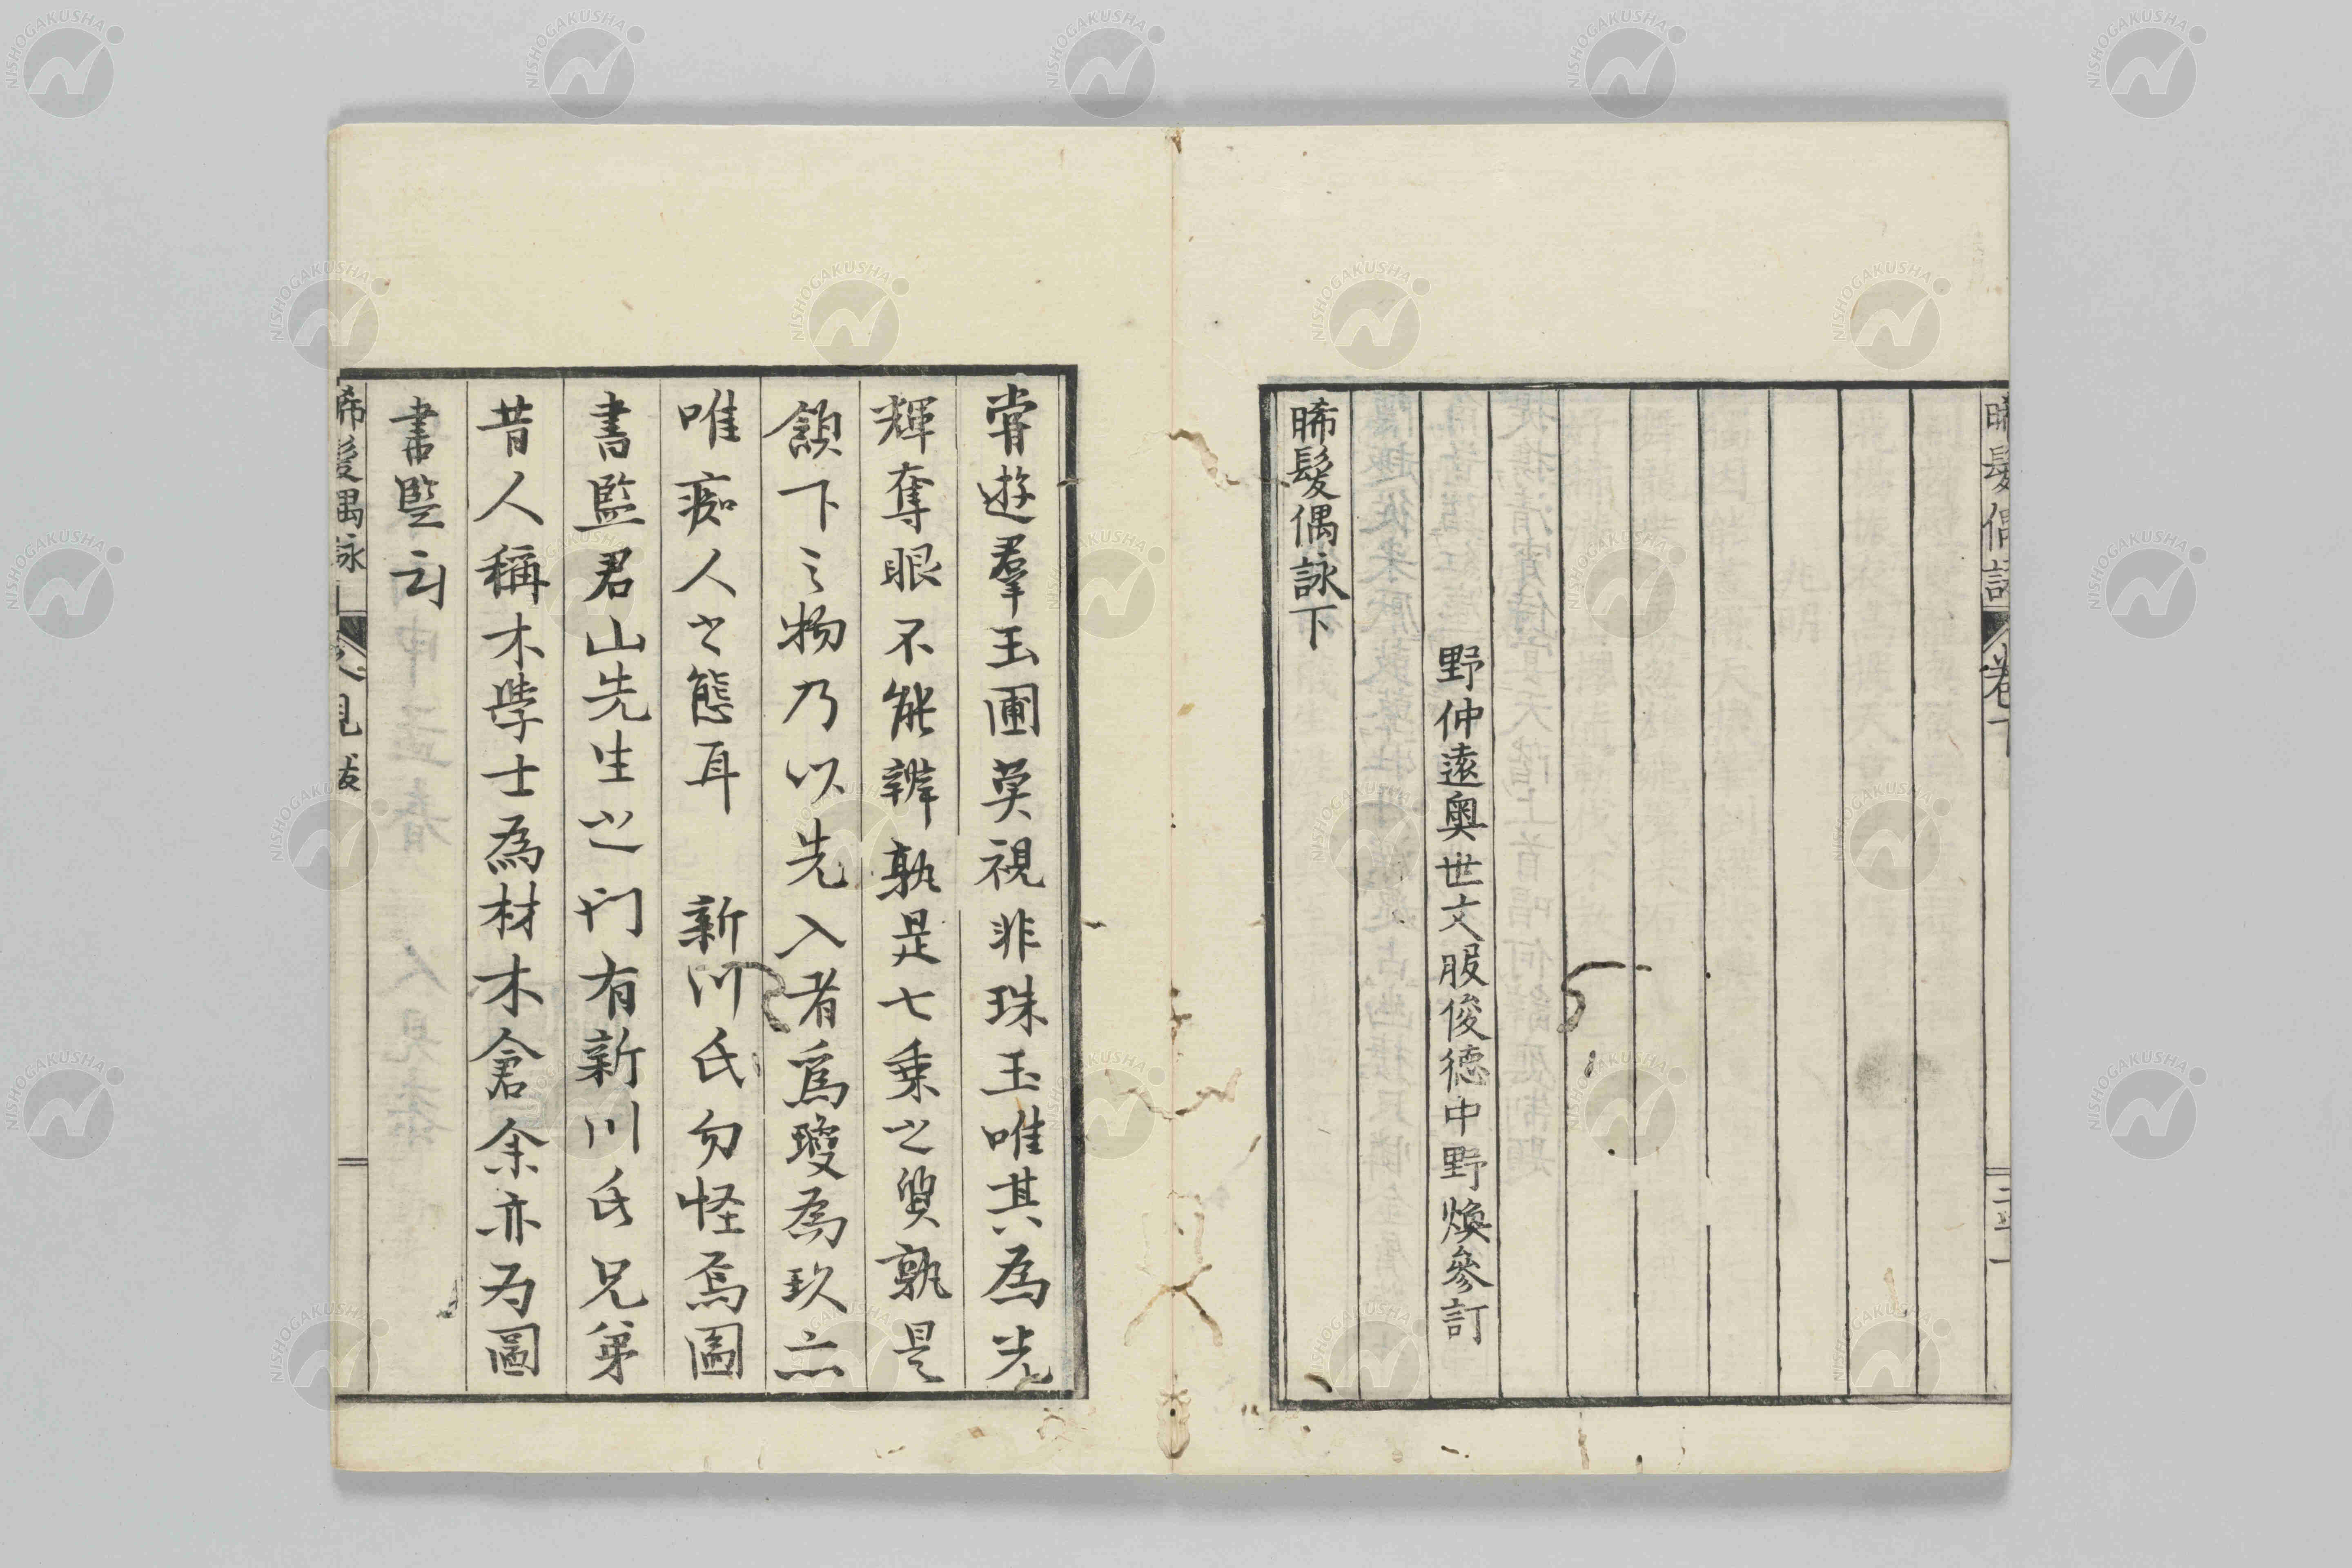 晞髮偶詠 卷下 二十一
野仲遠奧世文服俊德中野煥參訂
晞髮偶詠下
嘗遊羣玉圃莫視非珠玉唯其為光
輝奪眼不能辨孰是七乘之質孰是
頷下之物乃以先入者爲瓊為玖亦
唯痴人之態耳 新川氏勿怪焉圖
書監君山先生之門有新川氏兄弟
昔人稱木學士為材木倉余亦为圖
書監云
晞髮偶詠 人見跋
NISHOGAKUSHA